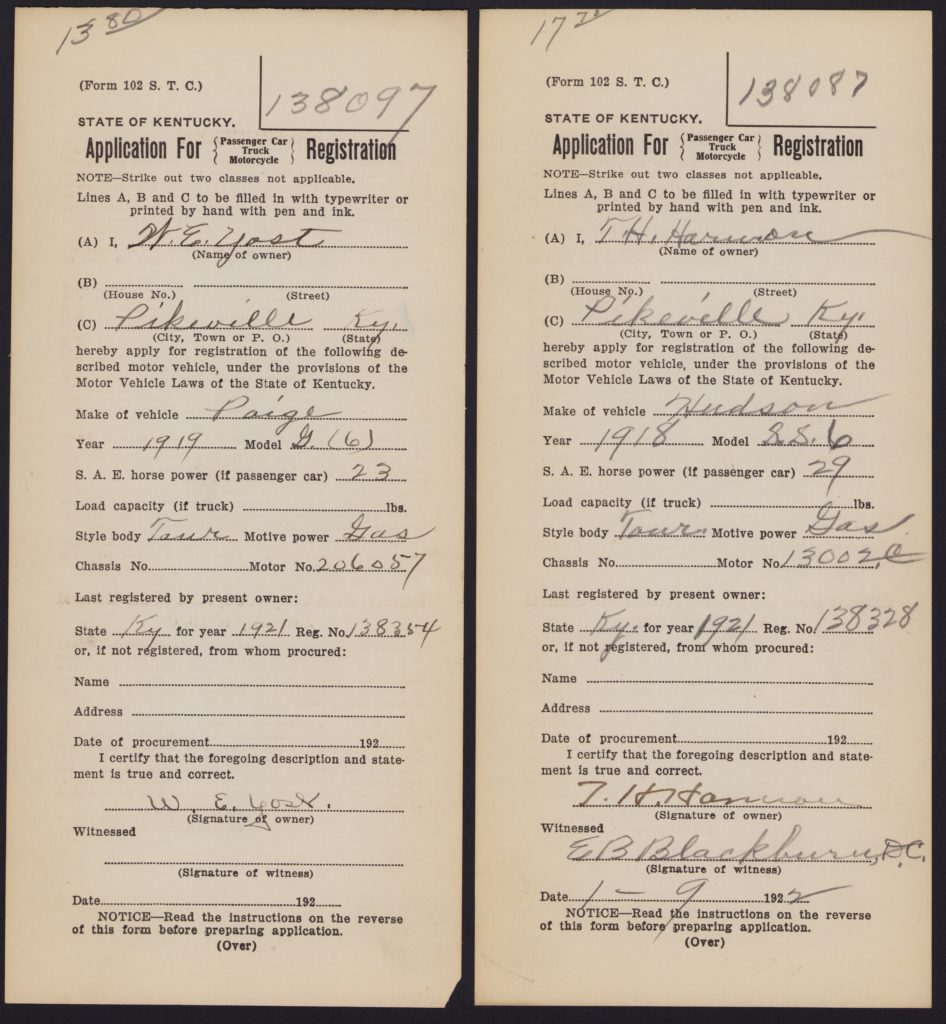 13 80
(Form 102 S. T. C.)
138097
STATE OF KENTUCKY.
Application For { Passenger Car
Truck
Motorcycle } Registration
NOTE—Strike out two classes not applicable.
Lines A, B and C to be filled in with typewriter or
printed by hand with pen and ink.
(A) I, W. E. Yost
(Name of owner)
(B)
(House No.) (Street)
(C) Pikeville Ky.
(City, Town or P. O.) (State)
hereby apply for registration of the following de-
scribed motor vehicle, under the provisions of the
Motor Vehicle Laws of the State of Kentucky.
Make of vehicle Paige
Year 1919 Model G. (6)
S. A. E. horse power (if passenger car) 23
Load capacity (if truck) lbs.
Style body Tour Motive power Gas
Chassis No. Motor No. 206057
Last registered by present owner:
State Ky for year 1921 Reg. No. 138354
or, if not registered, from whom procured:
Name
Address
Date of procurement 192
I certify that the foregoing description and state-
ment is true and correct.
W. E. Yost.
(Signature of owner)
Witnessed
(Signature of witness)
Date 192
NOTICE—Read the instructions on the reverse
of this form before preparing application.
(Over)
17
(Form 102 S. T. C.)
138087
STATE OF KENTUCKY.
Application For { Passenger Car
Truck
Motorcycle } Registration
NOTE—Strike out two classes not applicable.
Lines A, B and C to be filled in with typewriter or
printed by hand with pen and ink.
(A) I, T. H. Harmon
(Name of owner)
(B)
(House No.) (Street)
(C) Pikeville Ky.
(City, Town or P. O.) (State)
hereby apply for registration of the following de-
scribed motor vehicle, under the provisions of the
Motor Vehicle Laws of the State of Kentucky.
Make of vehicle Hudson
Year 1918 Model S.S. 6
S. A. E. horse power (if passenger car) 29
Load capacity (if truck) lbs.
Style body Tour Motive power Gas
Chassis No. Motor No.
Last registered by present owner:
State Ky. for year 1921 Reg. No. 138328
or, if not registered, from whom procured:
Name
Address
Date of procurement 192
I certify that the foregoing description and state-
ment is true and correct.
T. H. Harmon
(Signature of owner)
Witnessed
E B Blackburn, D.C.
(Signature of witness)
Date 1 - 9 1922
NOTICE—Read the instructions on the reverse
of this form before preparing application.
(Over)